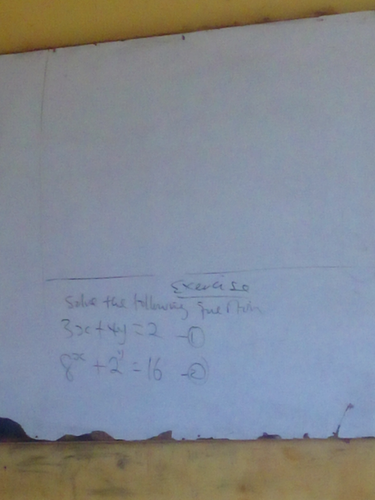 Exercise
Solve the following question
3x+4y=2 -①
8ˣ+2ʸ=16 -②